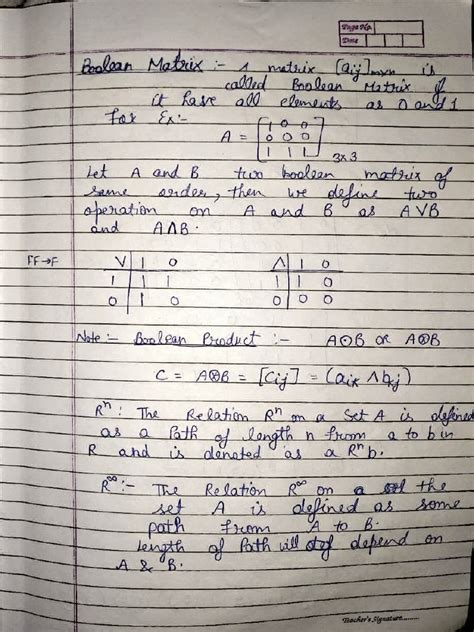 Page No.
Date
Boolean Matrix :- A matrix [aij]mxn is
called Boolean Matrix if
it have all elements as 0 and 1
For Ex:-
A = [1 0 0
0 0 0
1 1 1] 3x3
Let A and B two boolean matrix of
same order, then we define two
operation on A and B as A∨B
and A∧B.
FF→F
∨ 1 0 ∧ 1 0
1 1 1 1 1 0
0 1 0 0 0 0
Note :- Boolean Product :- A⊙B or A⊗B
C = A⊗B = [Cij] = (aik ∧ bkj)
Rⁿ : The Relation Rⁿ on a Set A is defined
as a Path of length n from a to b in
R and is denoted as a Rⁿ b.
R∞ :- The Relation R∞ on the
set A is defined as some
path from A to B.
length of Path will depend on
A & B.
Teacher's Signature........